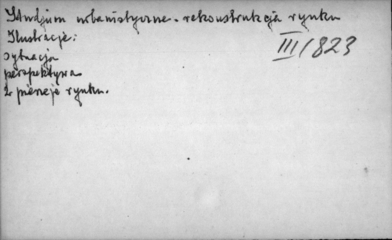 Studjum urbanistyczne - rekonstrukcja rynku
Ilustracje:
III/823
sytuacja
perspektywa
2 pierzeje rynku.